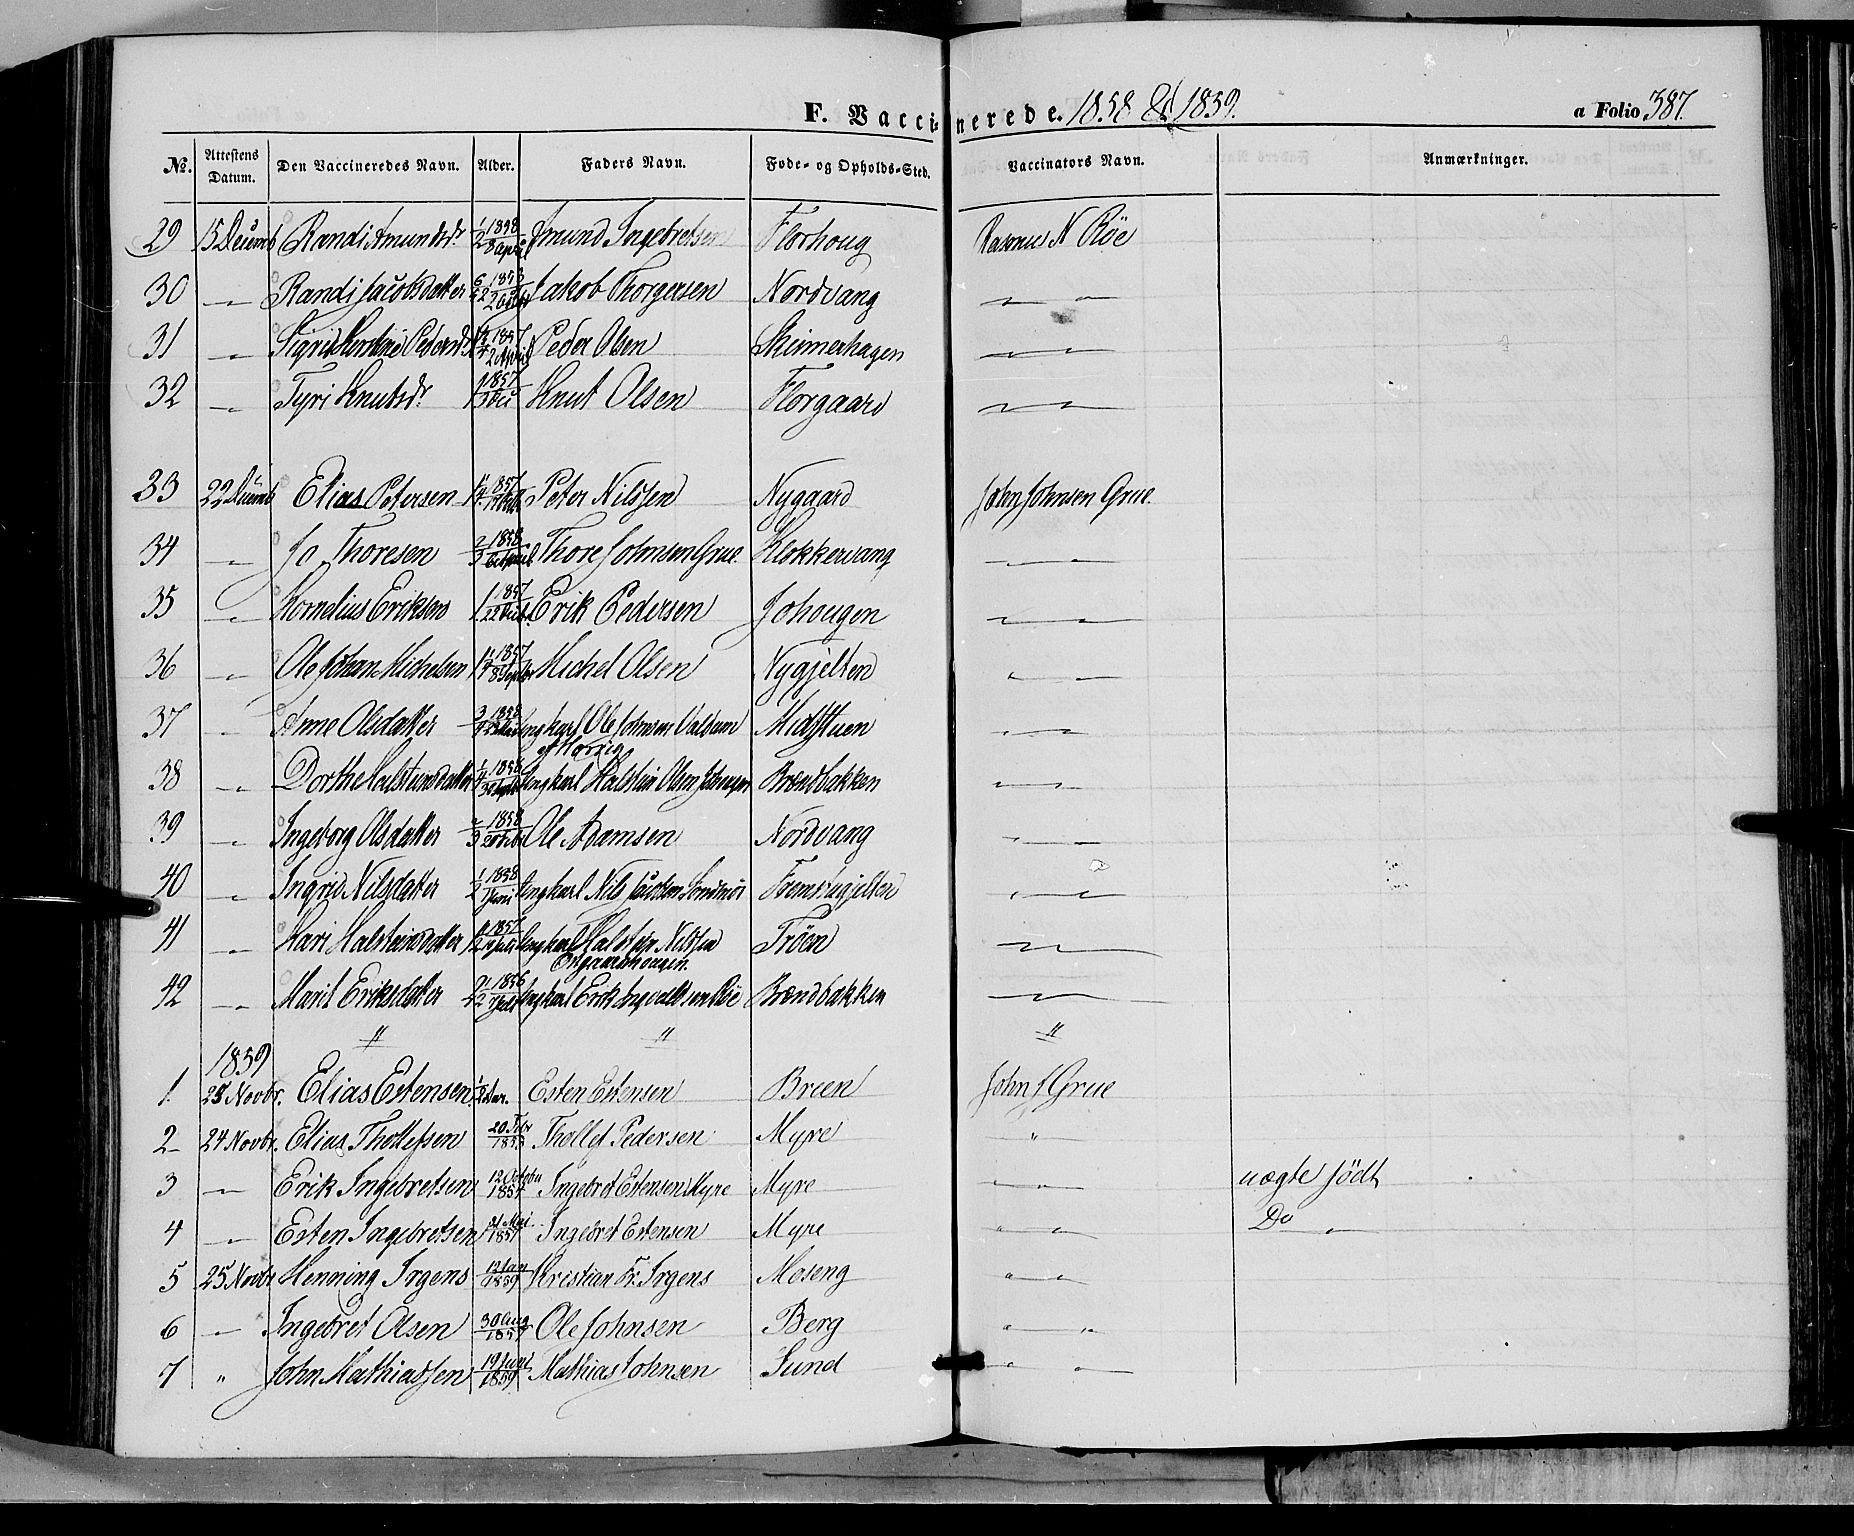 F. Vaccinerede. 1858 & 1859. a Folio 387.
No. Attestens Datum. Den Vaccineredes Navn. Alder. Faders Navn. Føde- og Opholds-Sted. Vaccinators Navn. Anmærkninger.
29 15 Decemb Randi Amundsdr 1/2 1858 Amund Ingebretsen Florhoug Rasmus N Røe
30 — Randi Jacobsdatter 1853 Jakob Thorgersen Nordvang — —
31 — Sigrid Pedersdr 1857 Peder Olsen Skinnerhagen — —
32 — Tyri Knutsdr 1857 Knut Olsen Florgaard — —
33 22 Decemb Elias Petersen 1857 Peter Nilssen Nygaard John Johnsen Grue.
34 — Jo Thoresen 2/3 1858 6 April Thore Johnsen Grue. Klokkervang — —
35 — Kornelius Eriksen 1 1857 Erik Pedersen Johougen — —
36 — Ole Johan Michelsen 1857 8 Septbr Michel Olsen Nygjelten — —
37 — Anne Olsdatter 1858 Ungkarl Ole Johnsen — —
38 — Dorthe Halsteinsdatter 1/4 1858 30 Septb Ungkarl Halstein Olsen Brændbakken — —
39 — Ingeborg Olsdatter 2/3 1858 Ole Adamsen Nordvang — —
40 — Ingrid Nilsdatter 1/2 1858 Juni Ungkarl Nils Jacobsen Fremstugjelten — —
41 — Kari Halsteinsdatter 1857 Ungkarl Halsteyn Nilssen Trøen — —
42 — Marit Eriksdatter 1856 Ungkarl Erik Ingvaldsen Røe Brændbakken — —
" " "
1859
1. 23 Novbr. Elias Estensen. 1/2 Aar. Esten Estensen Breen John J Grue
2 24 Novbr. Elias Thollefsen 20 Fbr 1853 Thollef Pedersen Myre "
3 — Erik Ingebretsen 12 Octobr 1857 Ingebret Estensen Myre Myre — — uægte født
4 — Esten Ingebretsen Mai 1857 Ingebret Estensen Myre " — Do —
5 25 Novbr Henning Irgens 12 Jan 1859 Kristian Fr. Irgens Moseng " —
6 — Ingebret Olsen 30 Aug 1857 Ole Johnsen Berg " "
7 " John Mathiassen 19 Juni 1859 Mathias Johnsen Sund " —